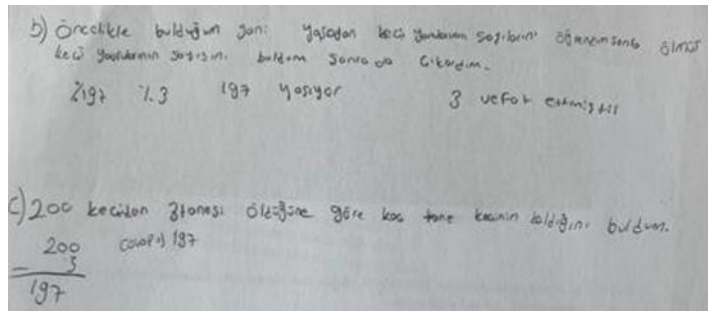 b) Öncelikle bulduğum şani yaşadan keci yavrularının sayılarını öğrenemsené ölmüş
keci yavrularının sayısını buldum sonra da Cıkardım.
%197 %.3 197 yaşıyor 3 vefat etmiştir
C) 200 keciden 3tanesi öldüğüne göre kaç tane kecinin kaldığını buldum.
200 cevap:) 197
- 3
197